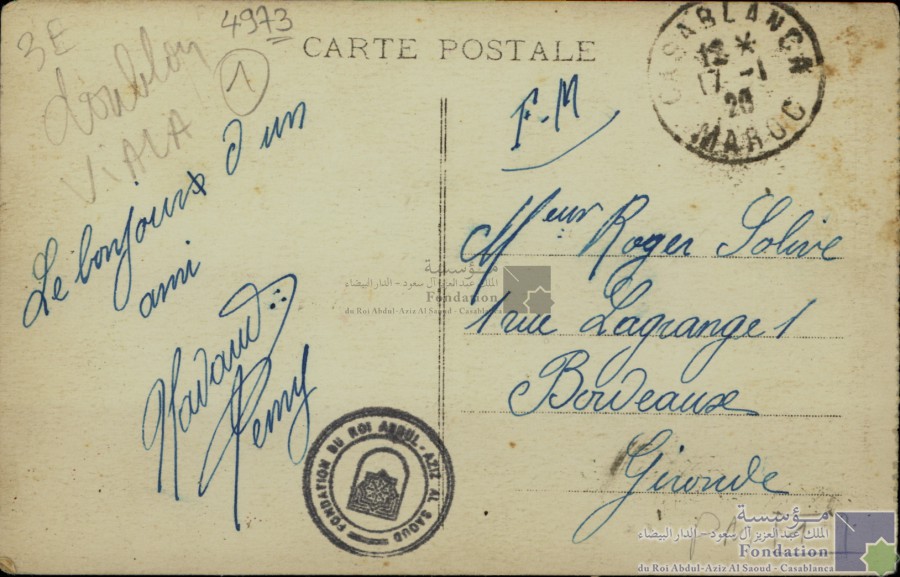 4973
3E
doublon
VIALA
1
CARTE POSTALE
CASABLANCA
12 *
17 - 1
20
MAROC
F.M
Le bonjour d'un
ami
Remy
Mᵉᵘʳ Roger Solive
1 rue Lagrange 1
Bordeaux
Gironde
FONDATION DU ROI ABDUL-AZIZ AL SAOUD
مؤسسة
الملك عبد العزيز آل سعود - الدار البيضاء
Fondation
du Roi Abdul-Aziz Al Saoud - Casablanca
مؤسسة
الملك عبد العزيز آل سعود - الدار البيضاء
Fondation
du Roi Abdul-Aziz Al Saoud - Casablanca